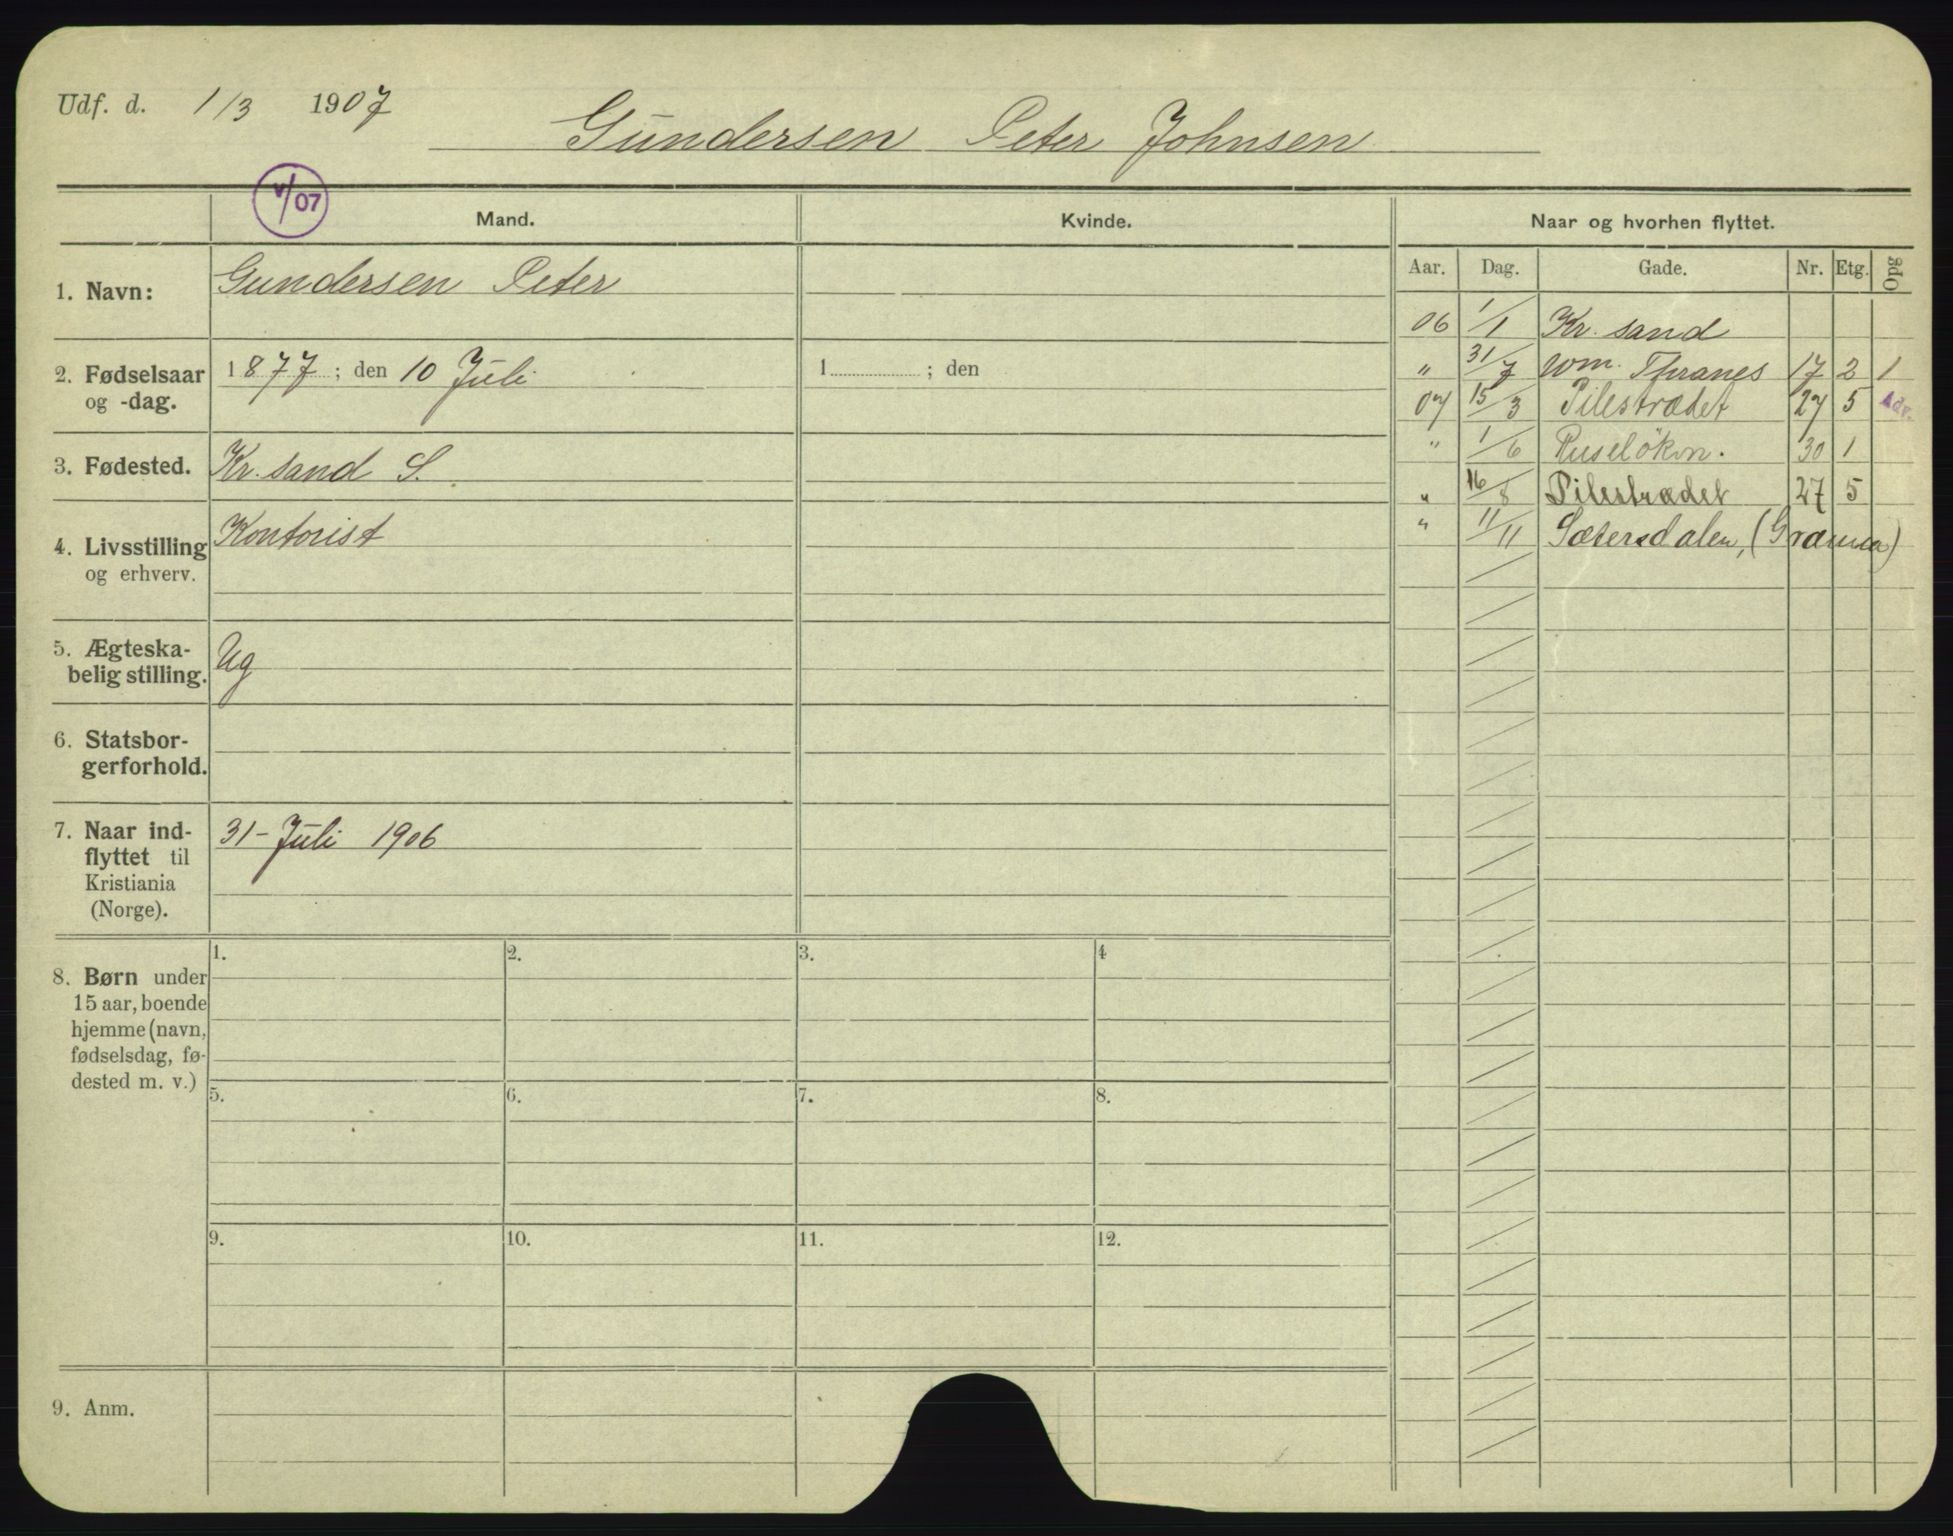 Udf. d. 1/3 1907
Gundersen Peter Johnsen
V/07
Mand.
Kvinde.
Naar og hvorhen flyttet.
Aar. Dag. Gade. Nr. Etg. Opg
1. Navn: Gundersen Peter
2. Fødselsaar 1877; den 10 Juli 1 ; den
og -dag.
3. Fødested. Kr. sand S.
4. Livsstilling Kontorist
og erhverv.
5. Ægteska- Ug
belig stilling.
6. Statsbor-
gerforhold.
7. Naar ind- 31- Juli 1906
flyttet til
Kristiania
(Norge).
8. Børn under
15 aar, boende
hjemme (navn,
fødselsdag, fø-
dested m. v.)
1. 2. 3. 4
5. 6. 7. 8.
9. 10. 11. 12.
9. Anm.
06 1/1 Kr. sand
" 31/7 Wm. Thranes 17 2 1
07 15/3 Pilestrædet 27 5 Adv.
" 1/6 Ruseløkvn. 30 1
" 16/8 Pilestrædet 27 5
" 11/11 Sætersdalen,